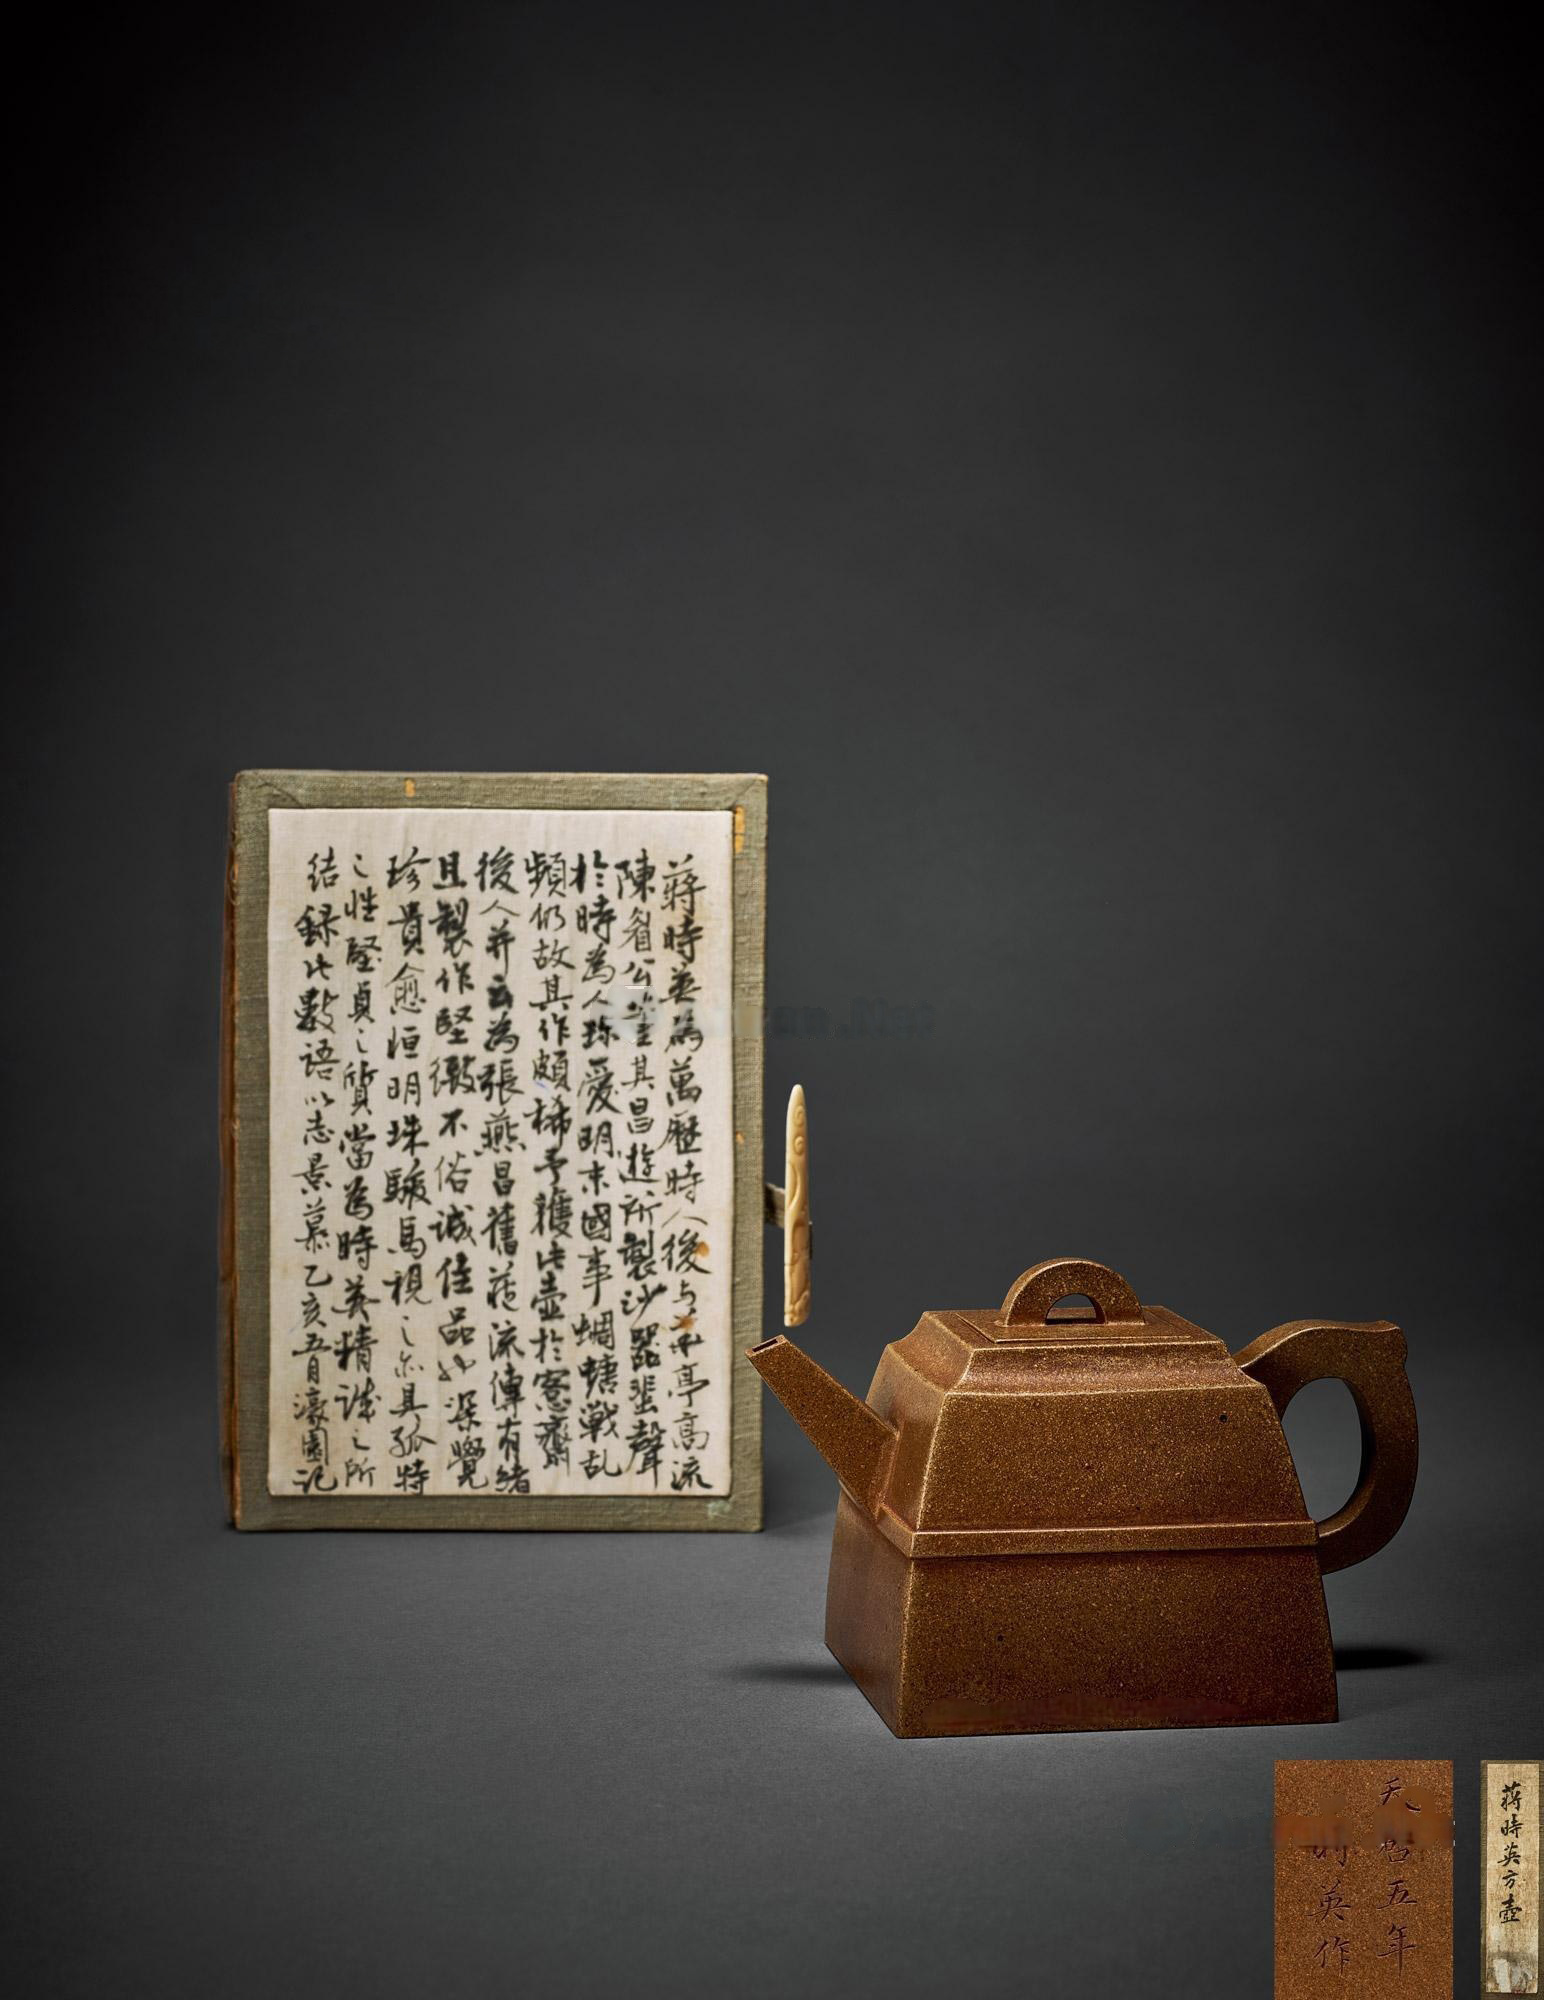 蔣時英為萬歷時人後与華亭高流
陳眉公董其昌遊所製沙器蜚聲
於時為人珎愛明末國事蜩螗戰乱
頻仍故其作頗稀予獲此壺於愙齋
後人并云為張燕昌舊藏流傳有緒
且製作堅緻不俗誠佳品也深覺
珍貴愈恒明珠駿馬視之亦具孤特
之性堅貞之質當為時英精誠之所
結録此數語以志景慕乙亥五月濠園記
天啟五年
時英作
蔣時英方壺